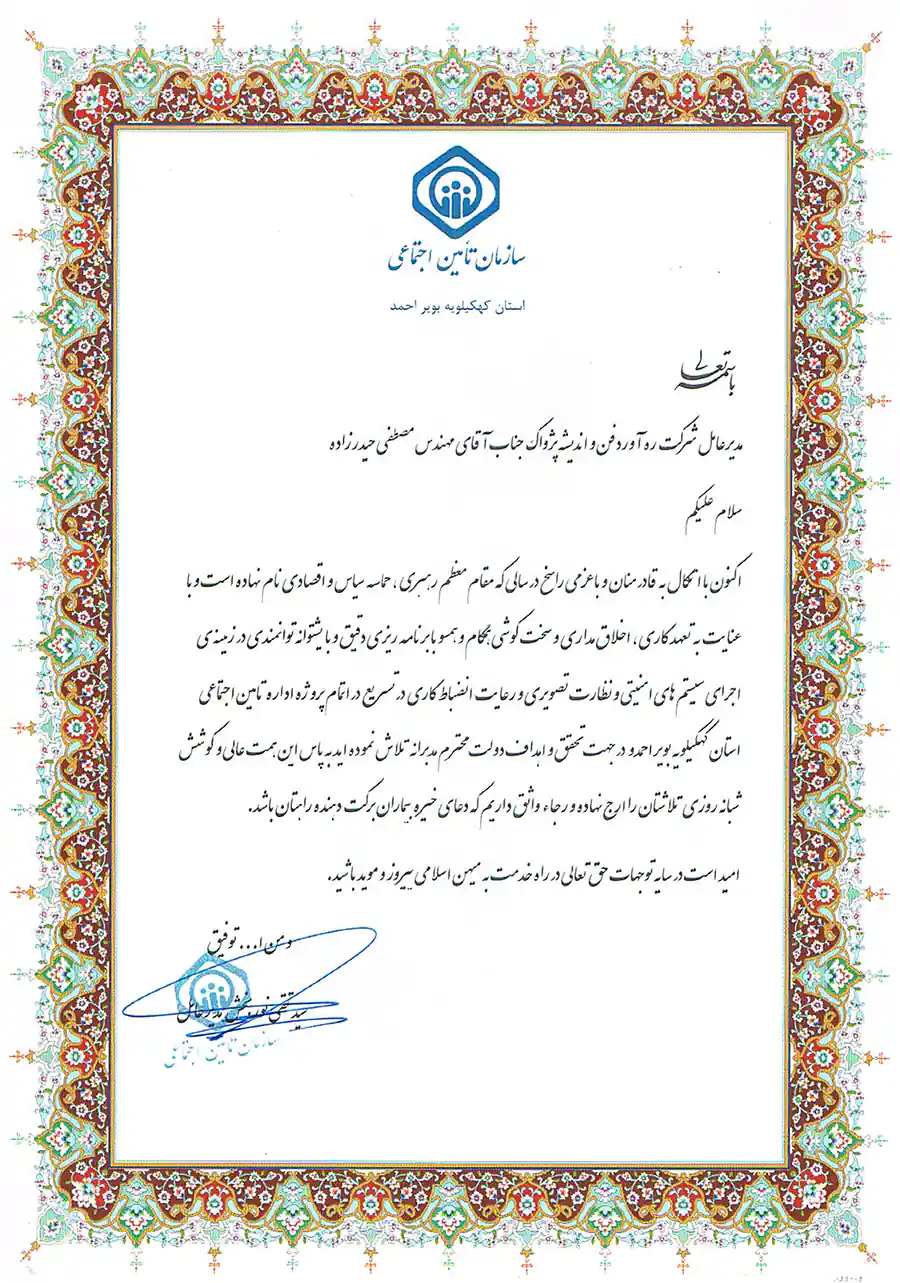 سازمان تأمین اجتماعی
استان کهکیلویه بویر احمد
باسمه تعالی
مدیرعامل شرکت ره آورد فن و اندیشه پژواک جناب آقای مهندس مصطفی حیدرزاده
سلام علیکم
اکنون با اتکال به قادر منان و با عزمی راسخ در سالی که مقام معظم رهبری، حماسه سیاسی و اقتصادی نام نهاده است و با
عنایت به تعهد کاری، اخلاق مداری و سخت کوشی بهگام و همسو با برنامه ریزی دقیق و با پشتوانه توانمندی در زمینه ی
اجرای سیستم های امنیتی و نظارت تصویری و رعایت انضباط کاری در تسریع در اتمام پروژه اداره تامین اجتماعی
استان کهکیلویه بویر احمد و در جهت تحقق و اهداف دولت محترم مدبرانه تلاش نموده اید به پاس این همت عالی و کوشش
شبانه روزی تلاشتان را ارج نهاده و رجاء واثق داریم که دعای خیره بیماران برکت دهنده راهتان باشد.
امید است در سایه توجهات حق تعالی در راه خدمت به میهن اسلامی پیروز و موید باشید.
و من ا... توفیق
سید تقی نوربخش مدیرعامل
سازمان تأمین اجتماعی